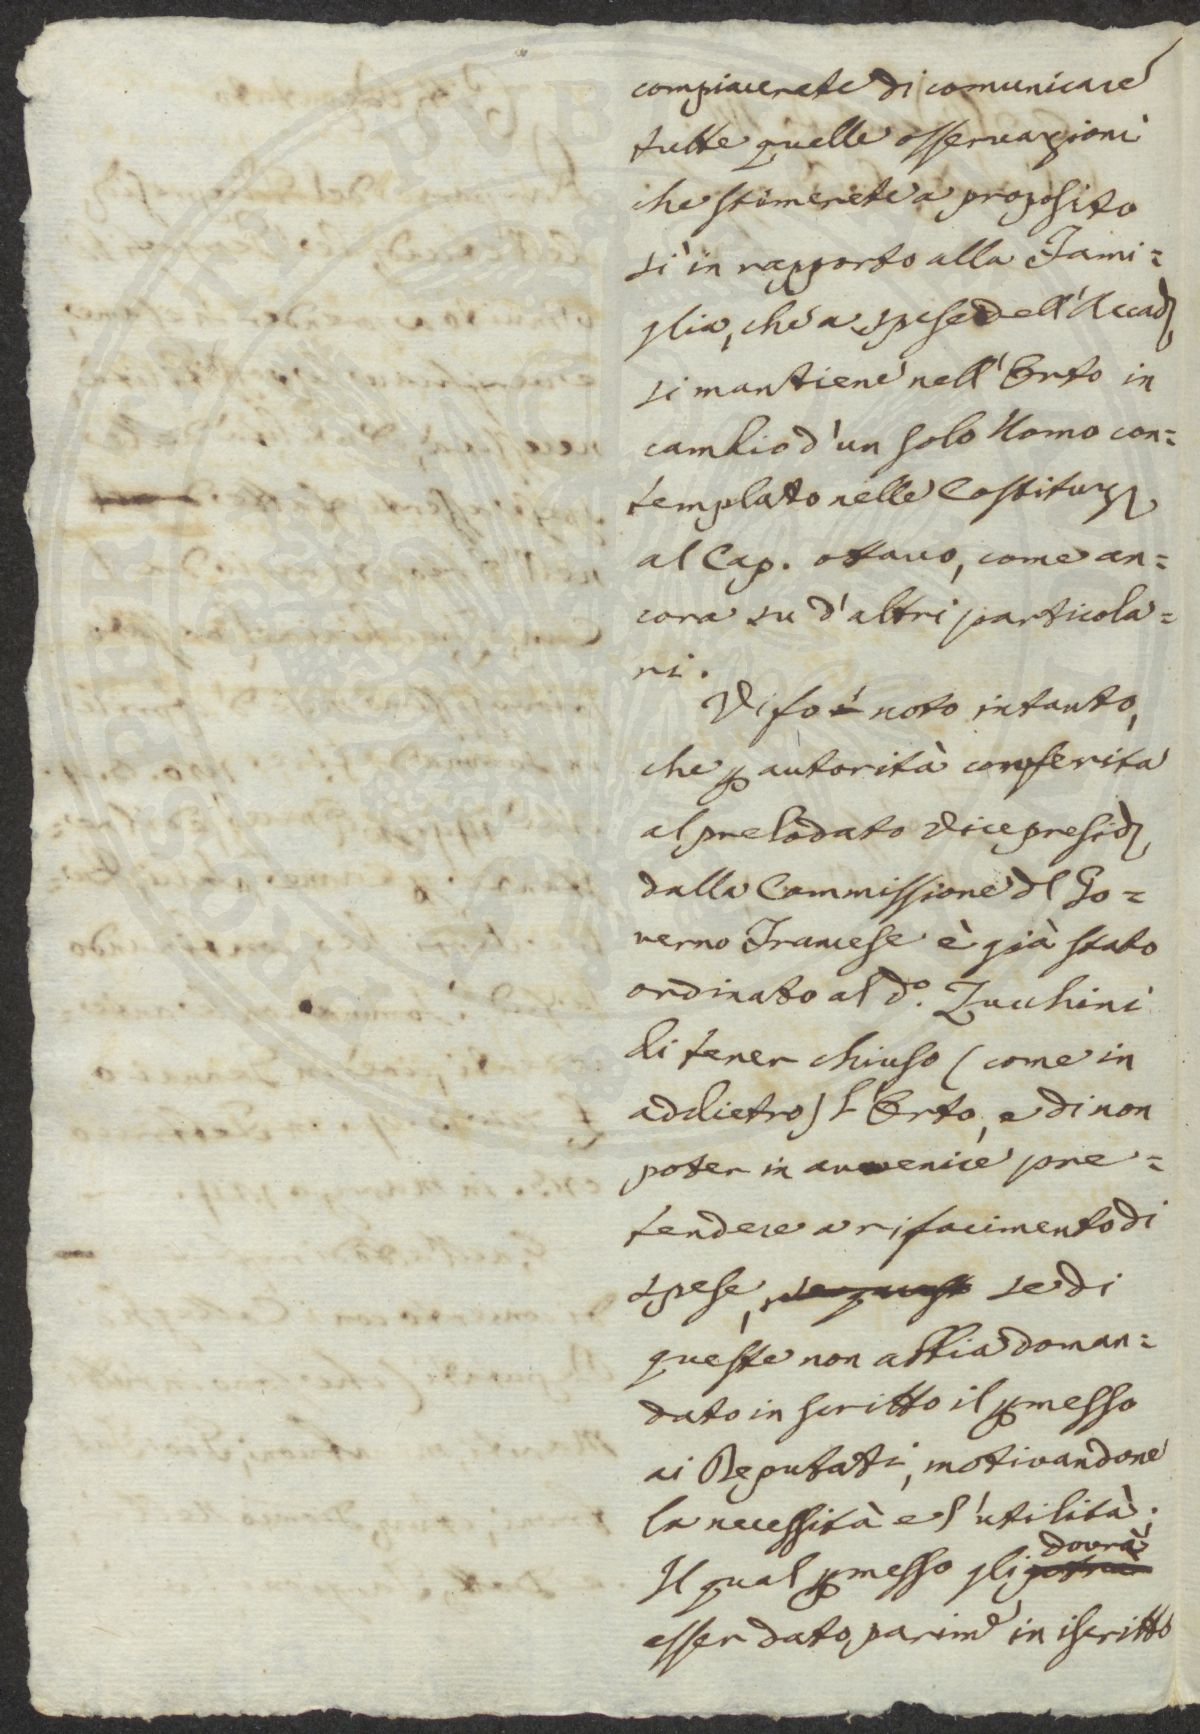 compiacerete di comunicare
tutte quelle osservazioni
che stimerete a proposito
sì in rapporto alla Fami=
glia, che a spese dell'Accad.
si mantiene nell'Orto in
cambio d'un solo Uomo con=
templato nelle Costituz.
al Cap. ottavo, come an=
cora su d'altri particola=
ri.
Vi fo noto intanto,
che p autorità conferita
al prelodato Vicepresid.
dalla Commissione dl Go=
verno Francese è già stato
ordinato al do. Zucchini
di tener chiuso (come in
addietro) l'Orto, e di non
poter in avvenire pre=
tendere a rifacimento di
spese, se di
queste non abbia doman=
dato in scritto il pmesso
ai Deputati, motivandone
la necessità e l'utilità.
dovrà
Il qual pmesso gli potrà
esser dato parime in iscritto